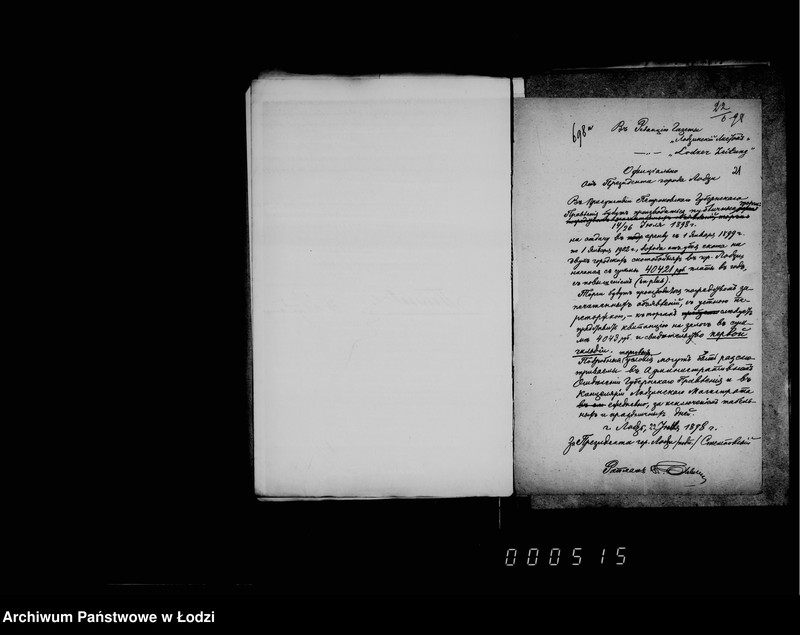 22/6 98
698
Въ Редакцію Газеты
„Лодзинскій Листокъ“
—„— „Lodzer Zeitung“
Оффиціально
21
Отъ Президента города Лодзи
Въ присутствіи Петроковскаго Губернскаго
Правленія будутъ производиться публичные торги
14/26 Іюля 1898 г.
на отдачу въ аренду съ 1 Января 1899 г.
по 1 Января 1902 г., дохода отъ убоя скота на
двухъ городскихъ скотобойняхъ въ гор. Лодзи
начиная съ суммы 40421 руб. въ годъ,
съ повышеніемъ (in plus).
Торги будутъ произведены посредствомъ за-
печатанныхъ объявленій, съ устною пе-
реторжкою, — къ торгамъ слѣдуетъ
представить квитанцію на залогъ въ сум-
мѣ 4043 руб. и свидѣтельство первой
гильдіи.
Подробныя торговыя условія могутъ быть разсма-
триваемы въ Административномъ
Отдѣленіи Губернскаго Правленія и въ
Канцеляріи Лодзинскаго Магистрата
ежедневно, за исключеніемъ табель-
ныхъ и праздничныхъ дней.
г. Лодзь, 22 1898 г.
За Президента гор. Лодзи
000515
Archiwum Państwowe w Łodzi